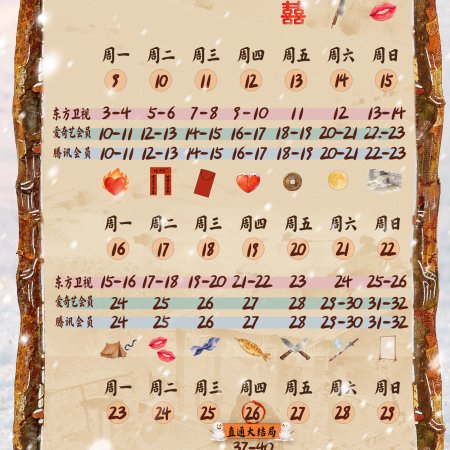 囍
周一 周二 周三 周四 周五 周六 周日
9 10 11 12 13 14 15
东方卫视 3-4 5-6 7-8 9-10 11 12 13-14
爱奇艺会员 10-11 12-13 14-15 16-17 18-19 20-21 22-23
腾讯会员 10-11 12-13 14-15 16-17 18-19 20-21 22-23
周一 周二 周三 周四 周五 周六 周日
16 17 18 19 20 21 22
东方卫视 15-16 17-18 19-20 21-22 23 24 25-26
爱奇艺会员 24 25 26 27 28 29-30 31-32
腾讯会员 24 25 26 27 28 29-30 31-32
周一 周二 周三 周四 周五 周六 周日
23 24 25 26 27 28 29
直通大结局
37-40